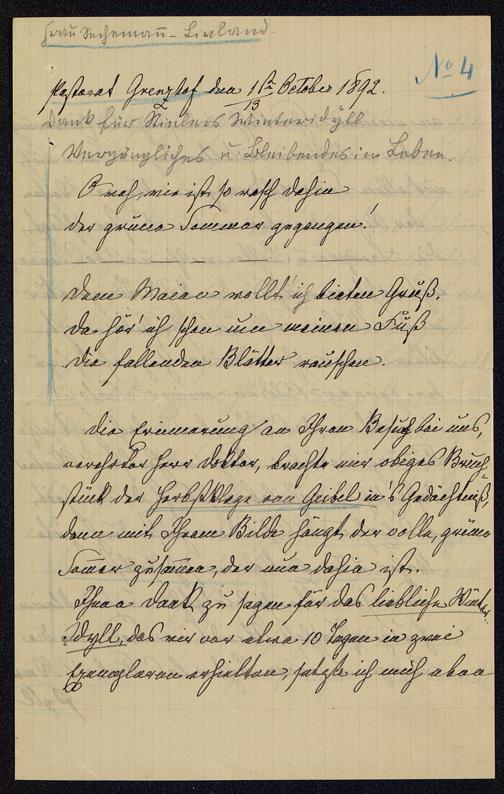 Frau Sechemañ - Livland.
No 4
Pastorat Grenzhof den 1ten/13 October 1892.
Dank für Stielers Winteridyll
Vergängliches u Bleibendes im Leben.
O weh, wie ist so rasch dahin
der grüne Sommer gegangen!
Dem Maien wollt' ich bieten Gruß,
da hör' ich schon um meinen Fuß
die fallenden Blätter rauschen.
Die Erinnerung an Ihren Besuch bei uns,
verehrter Herr Doktor, brachte mir obiges Bruch-
stück der Herbstklage von Geibel in's Gedächtniß,
denn mit Ihrem Bilde hängt der volle, grüne
Som̄er zusam̄en, der nun dahin ist.
Ihnen Dank zu sagen für das liebliche Winter-
Idyll, das wir vor etwa 10 Tagen in zwei
Exemplaren erhielten, setzte ich mich eben